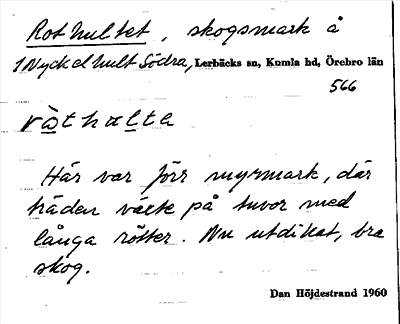 Rothultet, skogsmark å
1 Nyckelhult Södra, Lerbäcks sn, Kumla hd, Örebro län
566
ròthulta
Här var förr myrmark, där
träden växte på tuvor med
långa rötter. Nu utdikat, bra
skog.
Dan Höjdestrand 1960